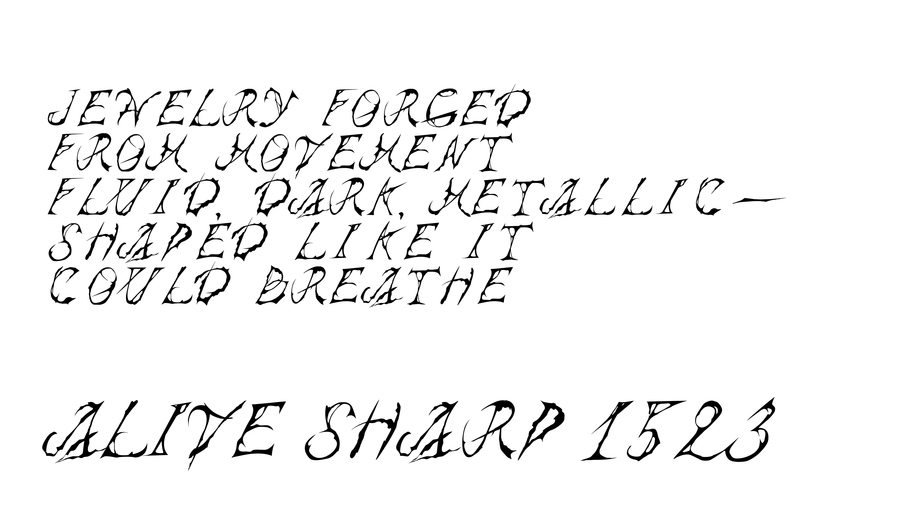 JEWELRY FORGED
FROM MOVEMENT
FLUID, DARK, METALLIC—
SHAPED LIKE IT
COULD BREATHE
ALIVE SHARP 1523